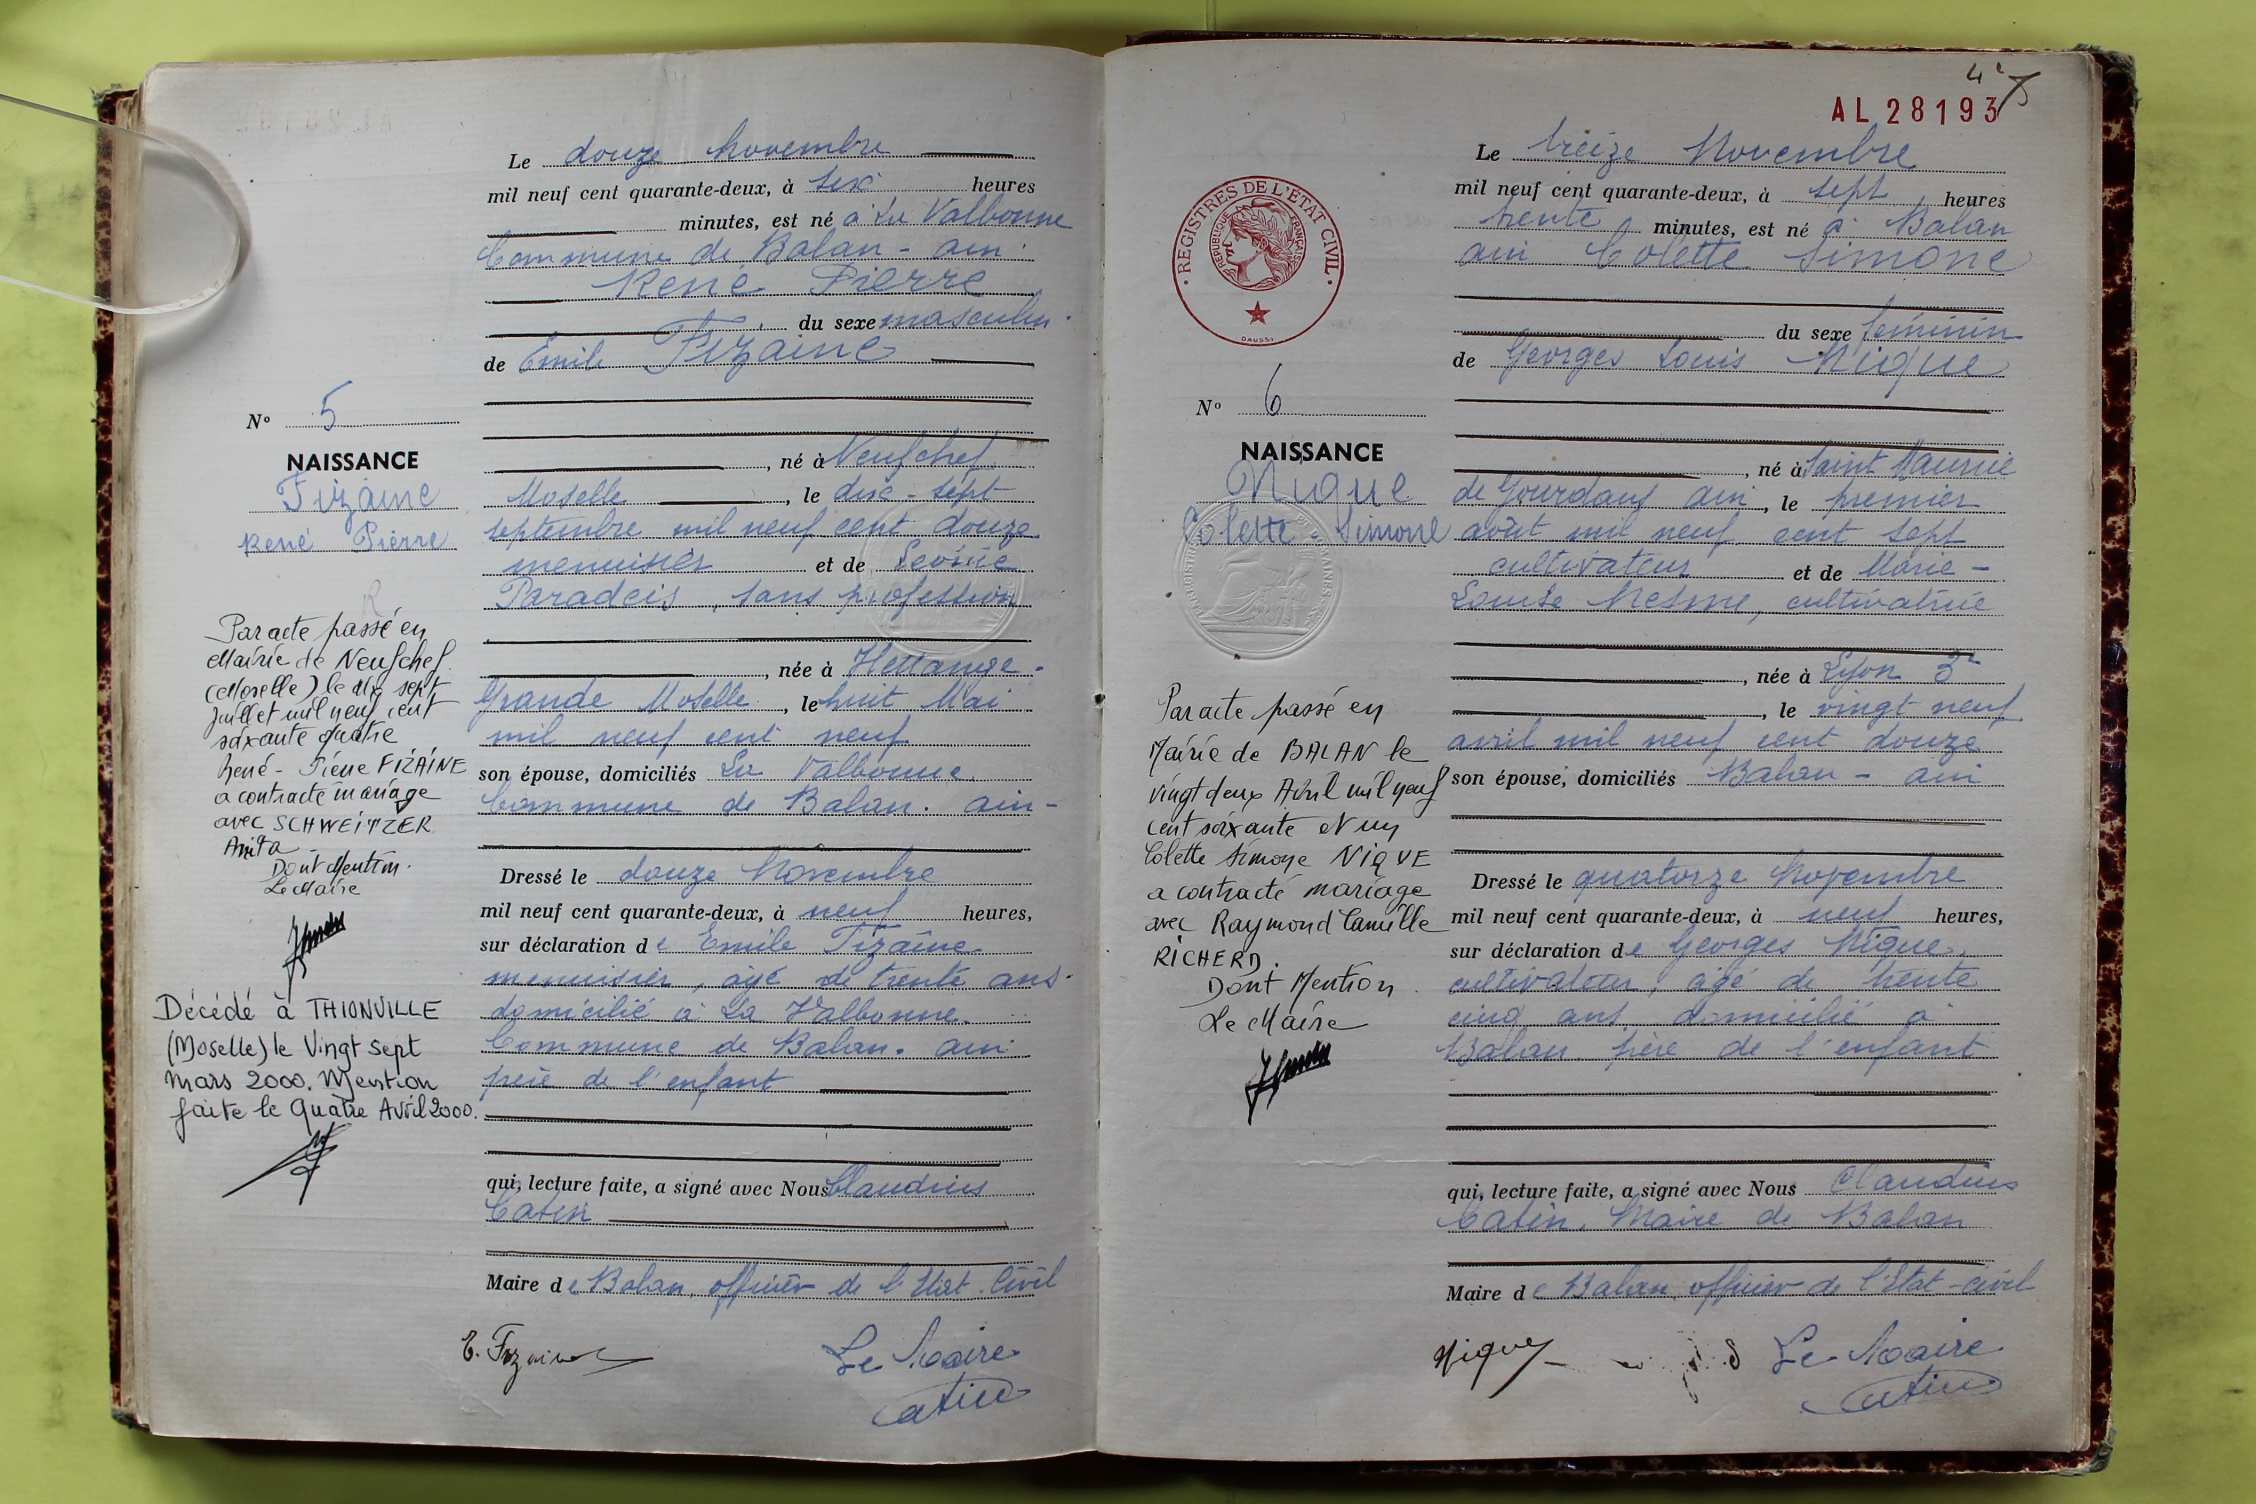 Le douze Novembre
mil neuf cent quarante-deux, à six heures
minutes, est né à La Valbonne
Commune de Balan - ain.
René Pierre
du sexe masculin.
de Emile Fizaine
N° 5
NAISSANCE
Fizaine
René Pierre
, né à Neufchef
Moselle , le dix-sept
septembre mil neuf cent douze
menuisier et de
Paradeis, sans profession
, née à Hettange-
Grande Moselle , le huit Mai
mil neuf cent neuf
son épouse, domiciliés La Valbonne
Commune de Balan. ain-
Dressé le douze Novembre
mil neuf cent quarante-deux, à neuf heures,
sur déclaration de Emile Fizaine
menuisier, agé de trente ans.
domicilié à La Valbonne.
Commune de Balan. ain.
père de l'enfant
qui, lecture faite, a signé avec Nous Claudius
Catin
Maire de Balan, officier de l'Etat. Civil
E. Fizaine
Le Maire
Catin
Par acte passé en
Mairie de Neufchef
(Moselle) le dix sept
Juillet mil neuf cent
soixante quatre
René - Pierre FIZAINE
a contracté mariage
avec SCHWEITZER
Anita
Dont Mention.
Le Maire
Décédé à THIONVILLE
(Moselle) le Vingt sept
mars 2000. Mention
faite le Quatre Avril 2000.
4e
AL 28193
Le treize Novembre
mil neuf cent quarante-deux, à sept heures
trente minutes, est né à Balan
ain Colette Simone
du sexe féminin
de Georges Louis Nique
REGISTRES DE L'ÉTAT CIVIL
RÉPUBLIQUE FRANÇAISE
DAUSSY
N° 6
NAISSANCE
Nique
Colette - Simone
, né à Saint Maurice
de Gourdans ain , le premier
août mil neuf cent sept
cultivateur et de Marie-
Louise Mesme, cultivatrice
, née à Lyon 3e
, le vingt neuf
avril mil neuf cent douze
son épouse, domiciliés Balan - ain
Dressé le quatorze Novembre
mil neuf cent quarante-deux, à neuf heures,
sur déclaration de Georges Nique,
cultivateur, agé de trente
cinq ans domicilié à
Balan père de l'enfant
qui, lecture faite, a signé avec Nous Claudius
Catin, Maire de Balan
Maire de Balan, officier de l'Etat-civil
Nique
Le Maire
Catin
Par acte passé en
Mairie de BALAN le
vingt deux Avril mil neuf
cent soixante et un
Colette Simone NIQUE
a contracté mariage
avec Raymond Camille
RICHERD.
Dont Mention
Le Maire